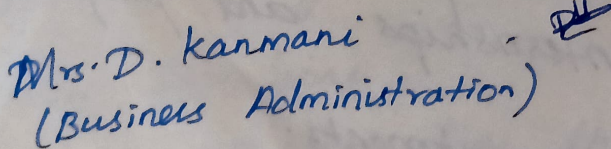 Mrs. D. Kanmani
(Business Administration)